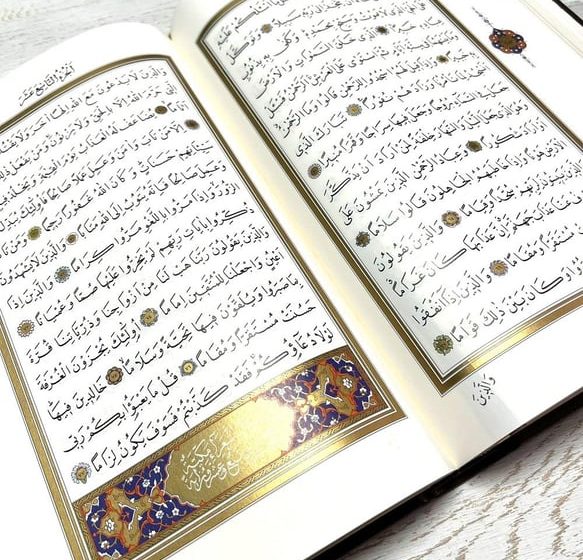 يَمُوتُ وَسَبِّحْ بِحَمْدِهِ وَكَفٰى بِهِ
الَّذِى خَلَقَ السَّمٰوَاتِ وَالْاَرْضَ
ثُمَّ اسْتَوٰى عَلَى الْعَرْشِ الرَّحْمٰنُ فَسْـَٔلْ
وَاِذَا قِيلَ لَهُمُ اسْجُدُوا لِلرَّحْمٰنِ قَالُوا وَمَا الرَّحْمٰنُ
تَأْمُرُنَا وَزَادَهُمْ نُفُورًا تَبَارَكَ الَّذِى
جَعَلَ فِى السَّمَاءِ بُرُوجًا وَجَعَلَ فِيهَا سِرَاجًا وَقَمَرًا مُنِيرًا
الَّذِى جَعَلَ الَّيْلَ وَالنَّهَارَ خِلْفَةً لِمَنْ اَرَادَ اَنْ يَذَّكَّرَ
اَوْ اَرَادَ شُكُورًا وَعِبَادُ الرَّحْمٰنِ الَّذِينَ يَمْشُونَ عَلَى
الْاَرْضِ هَوْنًا وَاِذَا خَاطَبَهُمُ الْجَاهِلُونَ قَالُوا سَلَامًا
سُجَّدًا وَقِيَامًا وَالَّذِينَ يَقُولُونَ
عَنَّا عَذَابَ جَهَنَّمَ اِنَّ عَذَابَهَا كَانَ غَرَامًا
مُسْتَقَرًّا وَمُقَامًا وَالَّذِينَ اِذَا اَنْفَقُوا
وَكَانَ بَيْنَ ذٰلِكَ قَوَامًا
وَالَّذِينَ
الجزء التاسع عشر
وَالَّذِينَ لَا يَدْعُونَ مَعَ اللّٰهِ اِلٰهًا اٰخَرَ وَلَا يَقْتُلُونَ
الَّتِى حَرَّمَ اللّٰهُ اِلَّا بِالْحَقِّ وَلَا يَزْنُونَ وَمَنْ يَفْعَلْ
اَثَامًا يُضَاعَفْ لَهُ الْعَذَابُ يَوْمَ الْقِيٰمَةِ وَيَخْلُدْ
اِلَّا مَنْ تَابَ وَاٰمَنَ وَعَمِلَ عَمَلًا صَالِحًا فَاُولٰئِكَ
سَيِّـَٔاتِهِمْ حَسَنَاتٍ وَكَانَ اللّٰهُ غَفُورًا رَحِيمًا وَمَنْ تَابَ
وَعَمِلَ صَالِحًا فَاِنَّهُ يَتُوبُ اِلَى اللّٰهِ مَتَابًا وَالَّذِينَ لَا يَشْهَدُونَ
الزُّورَ وَاِذَا مَرُّوا بِاللَّغْوِ مَرُّوا كِرَامًا وَالَّذِينَ اِذَا
ذُكِّرُوا بِاٰيَاتِ رَبِّهِمْ لَمْ يَخِرُّوا عَلَيْهَا صُمًّا وَعُمْيَانًا
وَالَّذِينَ يَقُولُونَ رَبَّنَا هَبْ لَنَا مِنْ اَزْوَاجِنَا وَذُرِّيَّاتِنَا قُرَّةَ
اَعْيُنٍ وَاجْعَلْنَا لِلْمُتَّقِينَ اِمَامًا اُولٰئِكَ يُجْزَوْنَ الْغُرْفَةَ
بِمَا صَبَرُوا وَيُلَقَّوْنَ فِيهَا تَحِيَّةً وَسَلَامًا خَالِدِينَ فِيهَا
حَسُنَتْ مُسْتَقَرًّا وَمُقَامًا قُلْ مَا يَعْبَؤُا بِكُمْ رَبِّى
لَوْلَا دُعَاؤُكُمْ فَقَدْ كَذَّبْتُمْ فَسَوْفَ يَكُونُ لِزَامًا